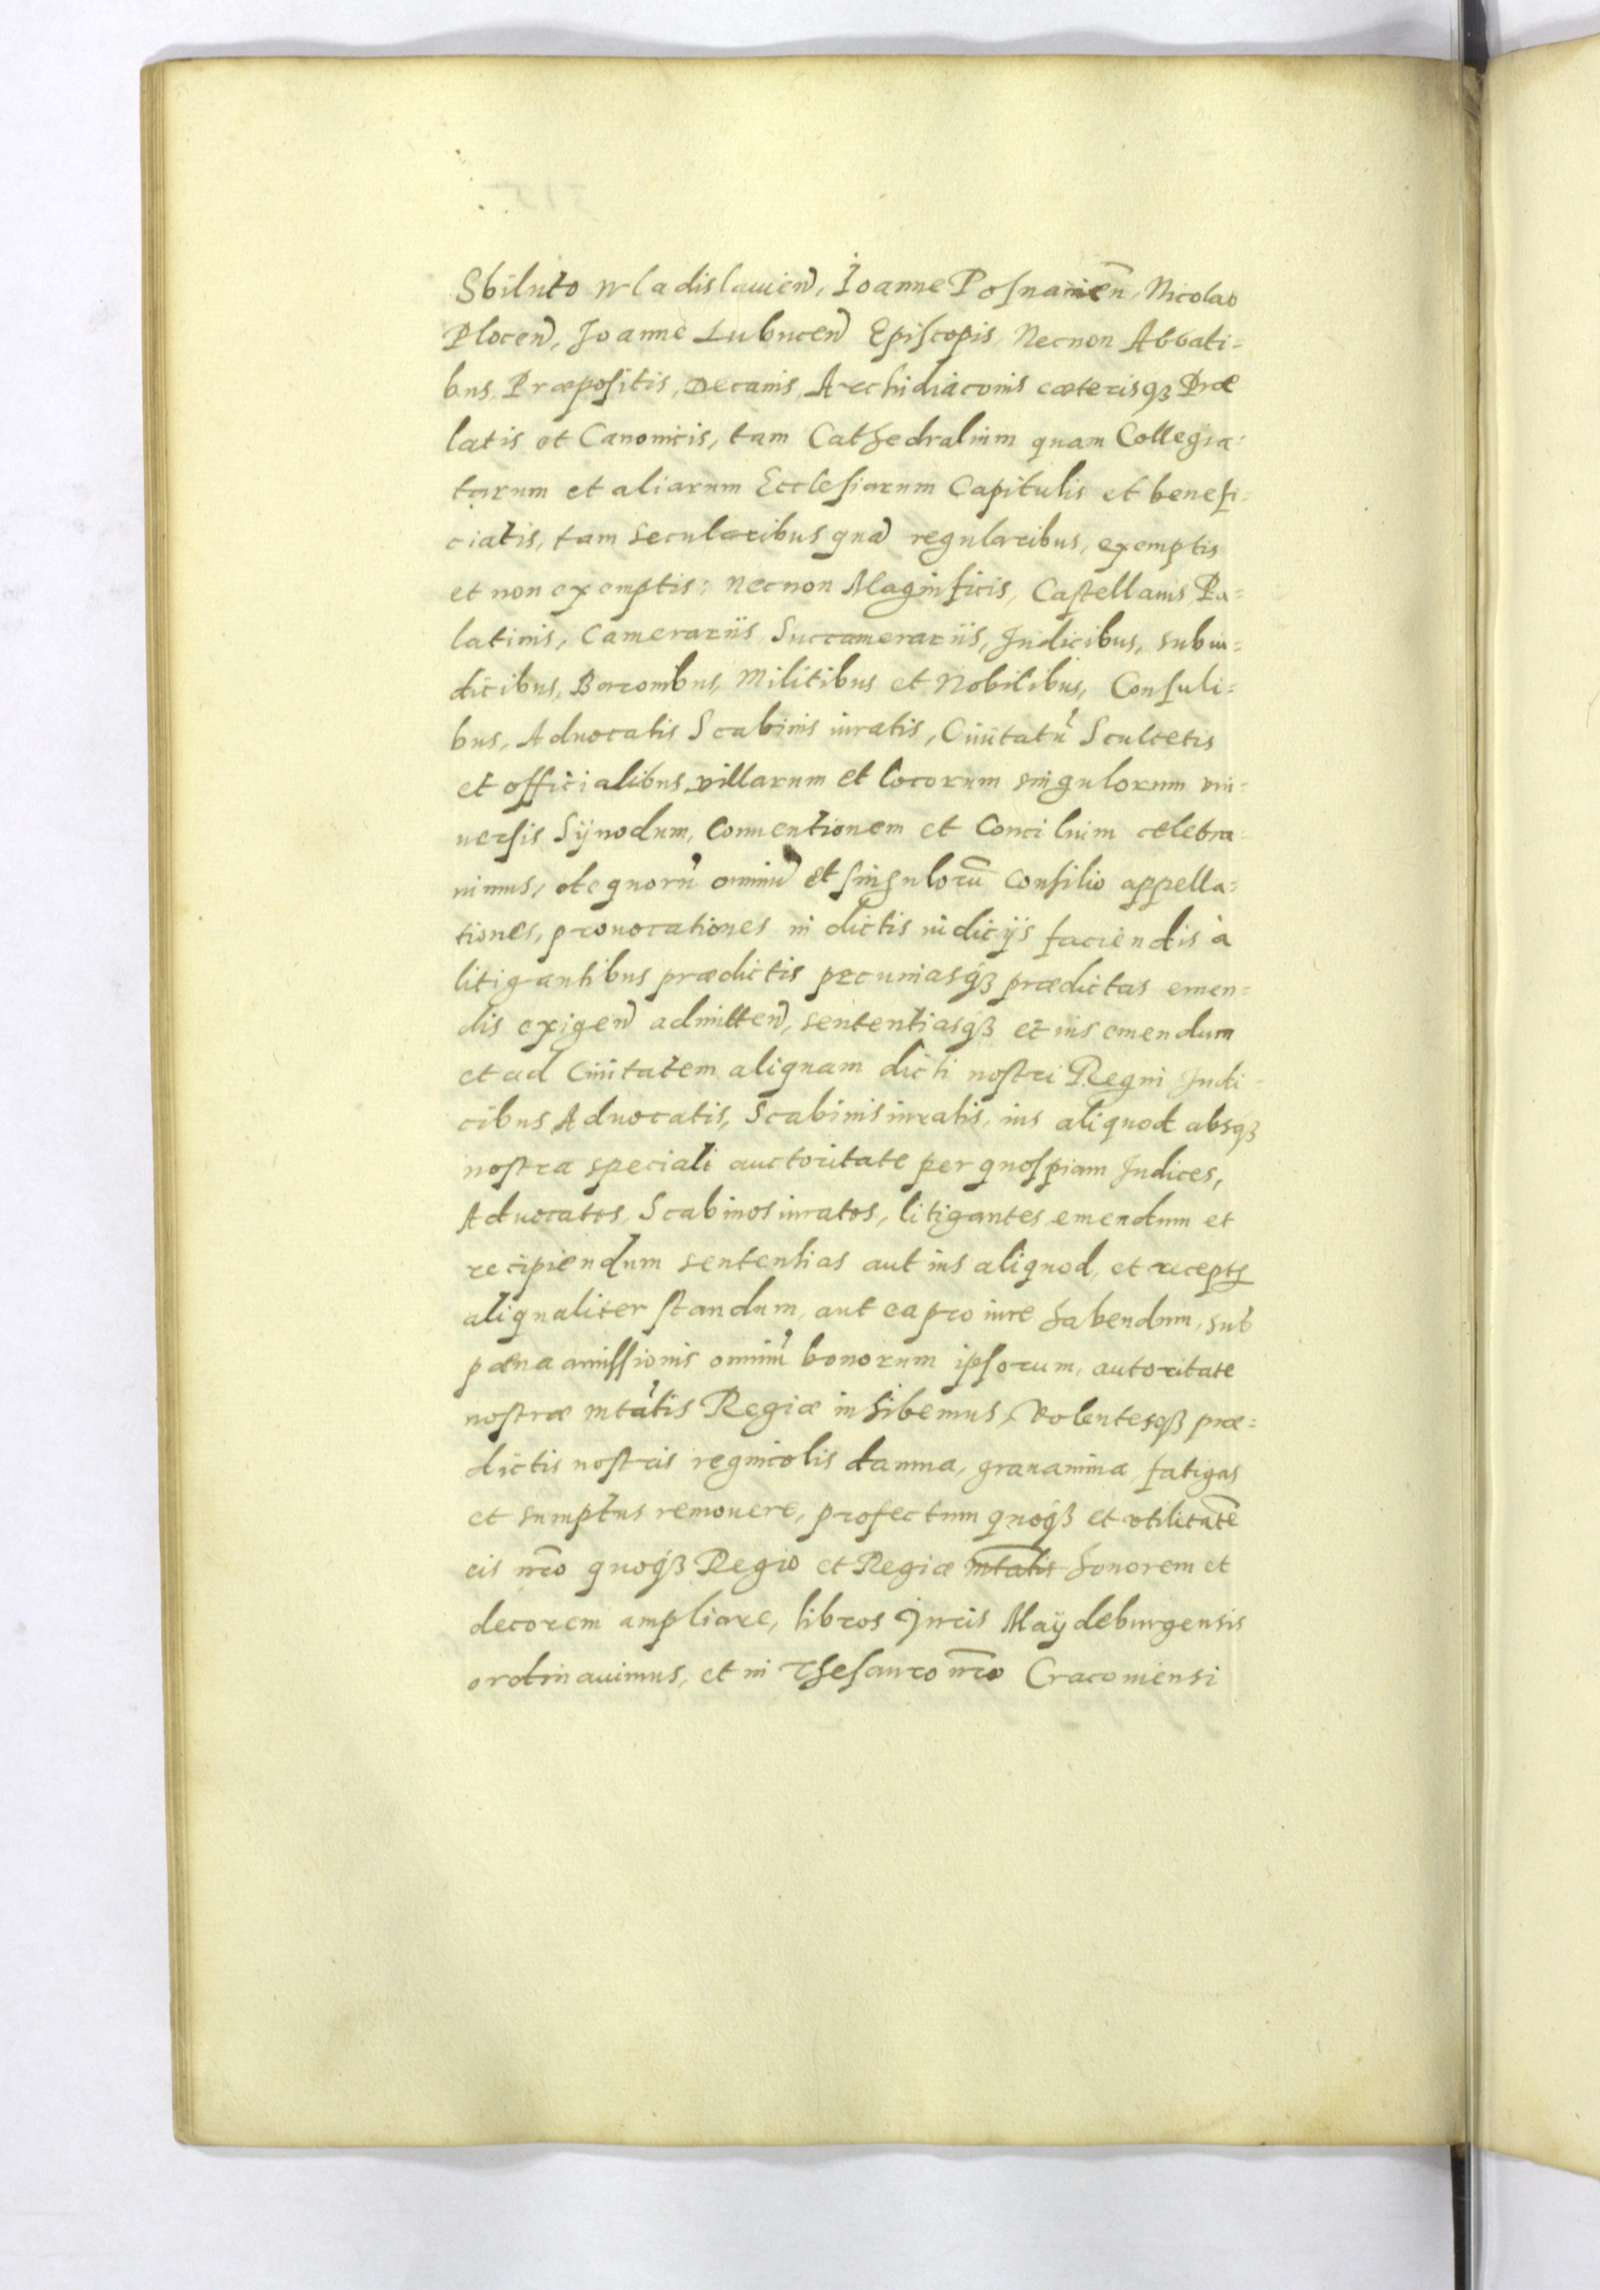 Sbiluto Wladislauien̄, Ioanne Posnanien̄, Nicolao
Plocen̄, Joanne Lubucen̄ Episcopis, Necnon Abbati=
bus, Præpositis, Decanis, Archidiaconis cæterisqꝫ Præ
latis et Canonicis, tam Cathedralium quam Collegia=
tarum et aliarum Ecclesiarum Capitulis et benefi=
ciatis, tam secularibus quā regularibus, exemptis
et non exemptis: necnon Magnificis, Castellanis Pa=
latinis, Camerariis Succamerariis, Judicibus, subiu=
dicibus, Baronibus, Militibus et Nobilibus, Consuli=
bus, Aduocatis Scabinis iuratis, Ciuitatū Scultetis
et officialibus, villarum et locorum singulorum vni=
uersis Sÿnodum, Conuentionem et Concilium celebra=
uimus, de quorū omniū et singulorū consilio appella=
tiones, prouocationes in dictis iudicijs faciendis à
litigantibus prædictis pecuniasqꝫ prædictas emen=
dis exigen̄ admitten̄, sententiasqꝫ et ius emendum
et ad Ciuitatem aliquam dicti nostri Regni Judi=
cibus Aduocatis, Scabinis iuratis, ius aliquod absqꝫ
nostra speciali auctoritate per quospiam Judices,
Aduocatos, Scabinos iuratos, litigantes emendum et
recipiendum sententias aut ius aliquod, et receptꝫ
aliqualiter standum, aut ea pro iure habendum, sub
pæna amissionis omniū bonorum ipsorum, autoritate
nostræ mtātis Regiæ inhibemus, Volentesqꝫ præ=
dictis nostris regnicolis damna, grauamina, fatigas
et sumptus remouere, profectum quoqꝫ et vtilitatē
eis nr̄o quoqꝫ Regio et Regiæ mtatis honorem et
decorem ampliare, libros Juris Maÿdeburgensis
ordinauimus, et in Thesauro nr̄o Cracouiensi